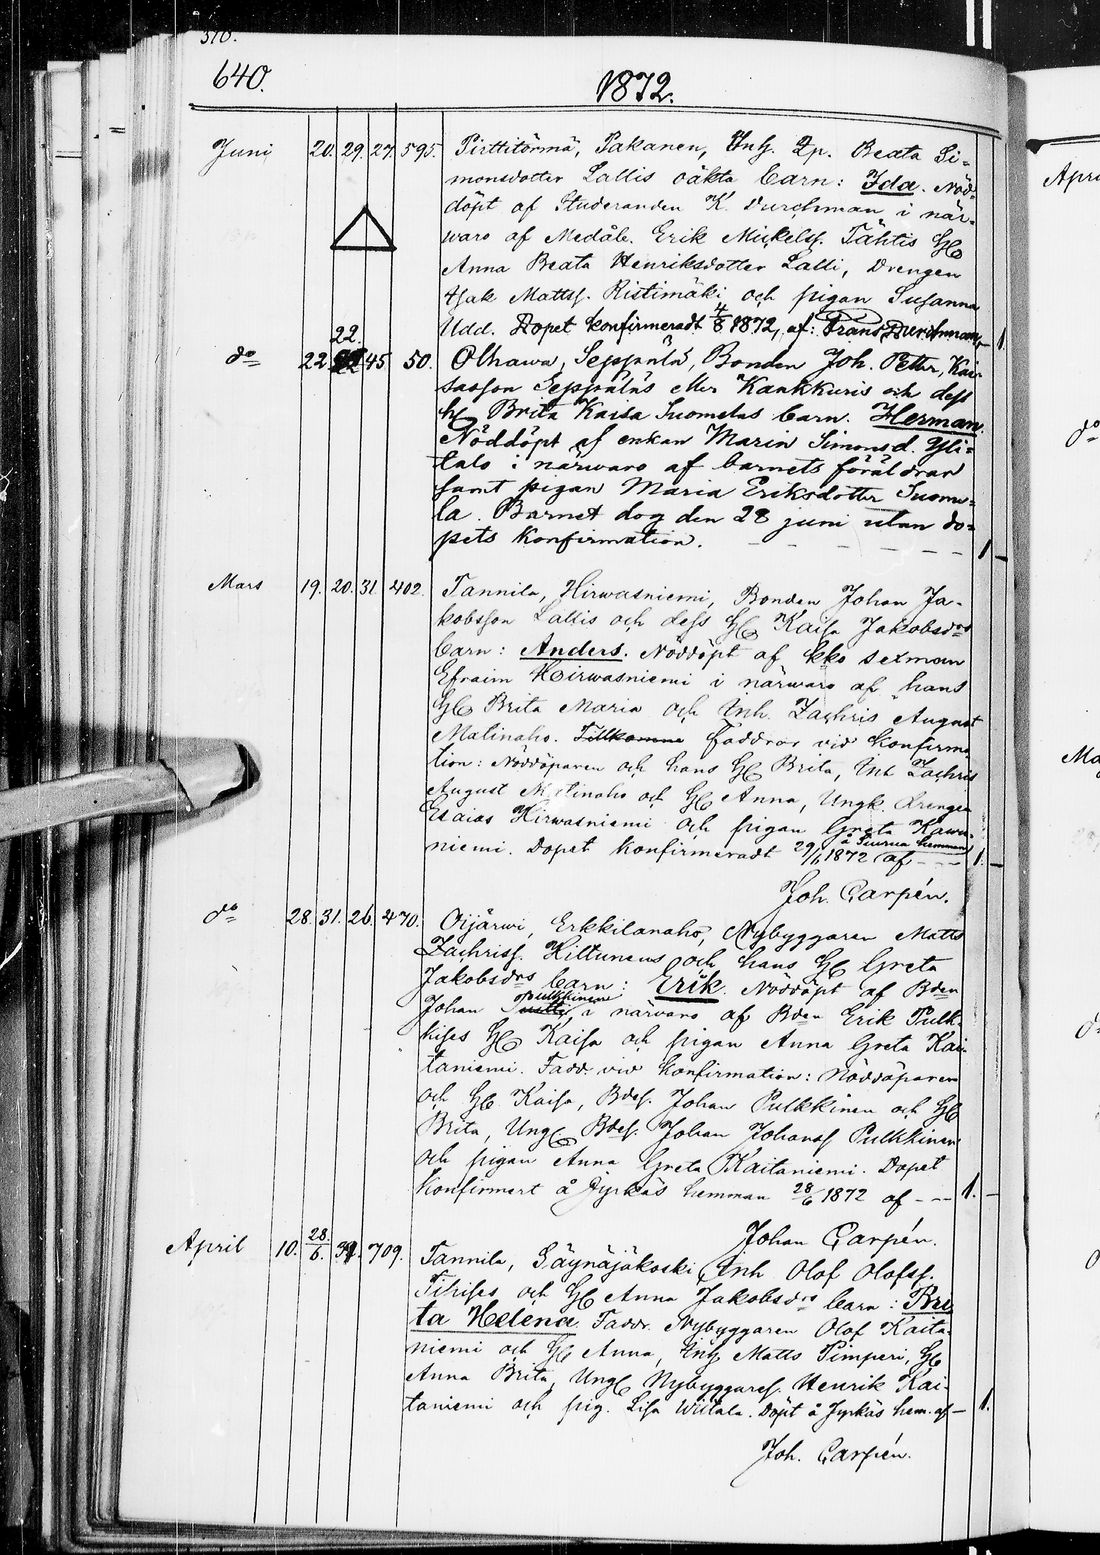 640.
1872.
Juni 20. 29. 27. 595. Pirttitörmä, Pakanen, Inh. Beata Si-
monsdotter Lallis oäkta barn: Ida. Nöd-
döpt af Studeranden K. Durchman i när-
waro af Erik Mickelss. Tähtis
Anna Beata Henriksdotter Lalli, Drengen
Isak Mattss. Ristimäki och pigan Susanna
Udd. Dopet konfirmeradt 4/8 1872, af: Frans Durchman 1
22.
do 22. 45 50. Olhawa, Seppälä, Bonden Joh. Petter, Kai-
sasson Seppäläs eller Kankkuris och dess
Hu Brita Kaisa Suomelas barn. Herman.
Nöddöpt af enkan Maria Simonsd. Yli-
talo i närwaro af barnets föräldrar
samt pigan Maria Eriksdotter Suome-
la. Barnet dog den 28 juni utan do-
pets konfirmation. 1
Mars 19. 20. 31. 402. Tannila, Hirwasniemi, Bonden Johan Ja-
kobsson Lallis och dess Hu Kaisa Jakobsdrs
barn: Anders. Nöddöpt af kko sexman
Efraim Hirwasniemi i närwaro af hans
Hu Brita Maria och Inh. Zachris August
Matinaho. Tillkomne Faddrar vid konfirma-
tion: Nöddöparen och hans Hu Brita, Inh Zachris
August Matinaho och Hu Anna, Ungk. drengen
Esaias Hirwasniemi och pigan Greta Kawa-
å Tuurua hemman
niemi. Dopet konfirmeradt 29/6 1872 af - - - 1.
Joh. Carpén.
do 28. 31. 26. 470. Oijärwi, Erkkilanaho, Nybyggaren Matts
Zachriss. Hiltunens och hans Hu Greta
Jakobsdrs barn: Erik. Nöddöpt af Bden
Pulkkinen
Johan i närvaro af Bden Erik Pulk-
kises Hu Kaisa och pigan Anna Greta Kai-
taniemi. Fadd. vid konfirmation: Nöddöparen
och Hu Kaisa, Bdes. Johan Pulkkinen och Hu
Brita, Ungk Bdes. Johan Johanss Pulkkinen
och pigan Anna Greta Kaitaniemi. Dopet
konfirmert å Jyrkäs hemman 28/6 1872 af - - 1.
Johan Carpén.
April 10. 28/6. 709. Tannila, Säynäjäkoski, Inh Olof Olofss.
och Hu Anna Jakobsdrs barn: Bri
ta Helena. Faddr. Nybyggaren Olof Kaita-
niemi och Hu Anna, Inh Matts Pimperi, Hu
Anna Brita, Ungk Nybyggares. Henrik Kai-
taniemi och pig. Lisa Wiitala. Döpt å Jyrkäs hem. af - 1.
Joh. Carpén.